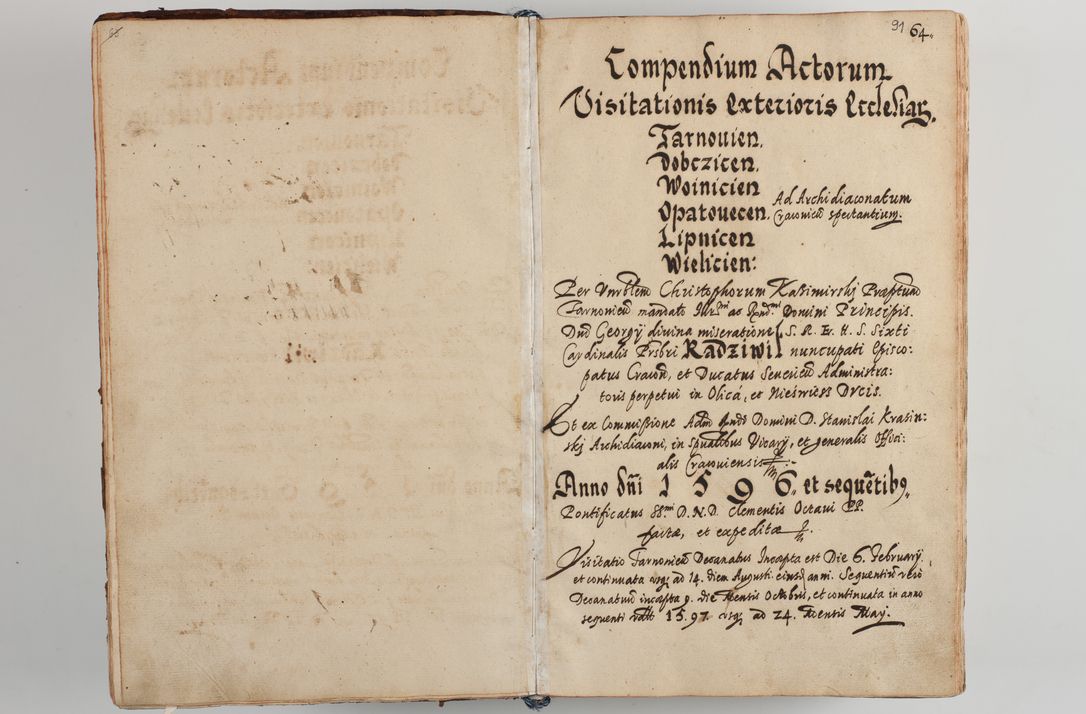 86
91 64.
Compendium Actorum
Visitationis Exterioris Ecclesiar.
Tarnouien.
Dobczicen.
Woinicien
Opatouecen.
Ad Archidiaconatum
Cracovien spectantium.
Lipnicen
Wielicien:
Per Vnrblem Christophorum Kazimirskj Præptum
Tarnonien mandato Illrmi ac Rndmi Domini Principis.
Dnd Georgÿ divina miseratione S. R. E. H. S. Sixti
Cardinalis Prsbri Radziwil nuncupati Episco-
patus Cracou, et Ducatus Seuerien Administra:
toris perpetui in Olica, et Nieswiess Dvcis.
Et ex Commissione Adm Rndi Domini D. Stanislai Krasin:
skj Archidiaconi, in Spualibus Vicarÿ, et generalis Offici:
alis Cracouiensis
Anno dñi 1596. et sequētib9.
Pontificatus SSmi D. N. D. Clementis Octaui PP.
factæ, et expeditæ
Visitatio Tarnonien Decanatus Incæpta est Die 6. Februarÿ
et continuata vsq; ad 14. diem Augusti eiusd anni. Sequentiu vero
Decanatuu incæpta 9. die Mensis Octobris, et continuata in anno
sequenti 1597 vsq; ad 24. Mensis Maÿ.